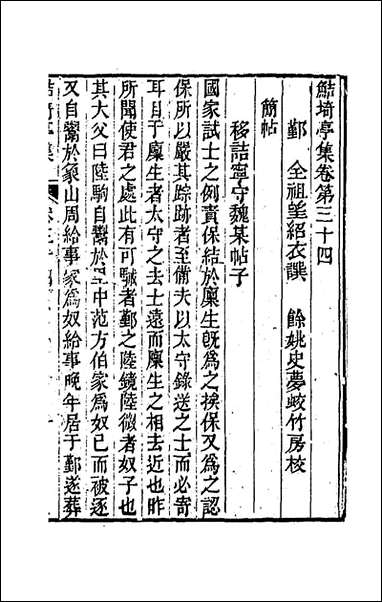 鮚埼亭集卷第三十四
鄞 全祖望紹衣譔 餘姚史夢蛟竹房校
簡帖
移詰寧守魏某帖子
國家試士之例責保結於廩生旣爲之挨保又爲之認
保所以嚴其踪跡者至備夫以太守錄送之士而必寄
耳目于廩生者太守之去士遠而廩生之相去近也昨
所聞使君之處此有可駴者鄞之陸鏡陸微者奴子也
其大父曰陸駒自鬻於中范方伯家爲奴已而被逐
又自鬻於象山周給事家爲奴給事晚年居于鄞遂葬
鮚埼亭集